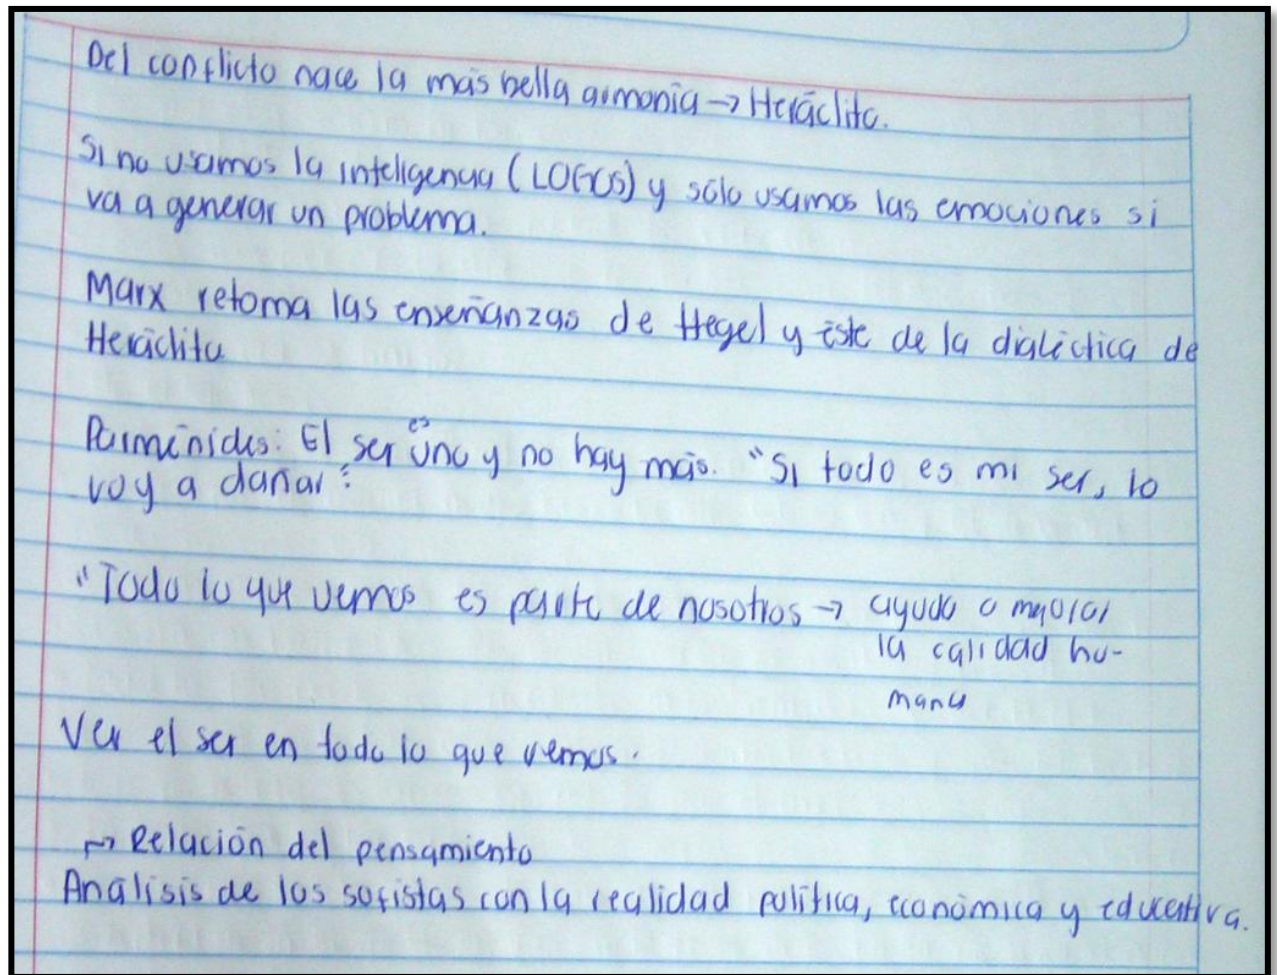 Del conflicto nace la más bella armonía → Heráclito.
Si no usamos la inteligencia (LOGOS) y sólo usamos las emociones si
va a generar un problema.
Marx retoma las enseñanzas de Hegel y éste de la dialéctica de
Heráclito
Parménides: El ser es uno y no hay más. "Si todo es mi ser, lo
voy a dañar?
"Todo lo que vemos es parte de nosotros → ayuda a mejorar
la calidad hu-
mana
Ver el ser en todo lo que vemos.
→ Relación del pensamiento
Análisis de los sofistas con la realidad política, económica y educativa.